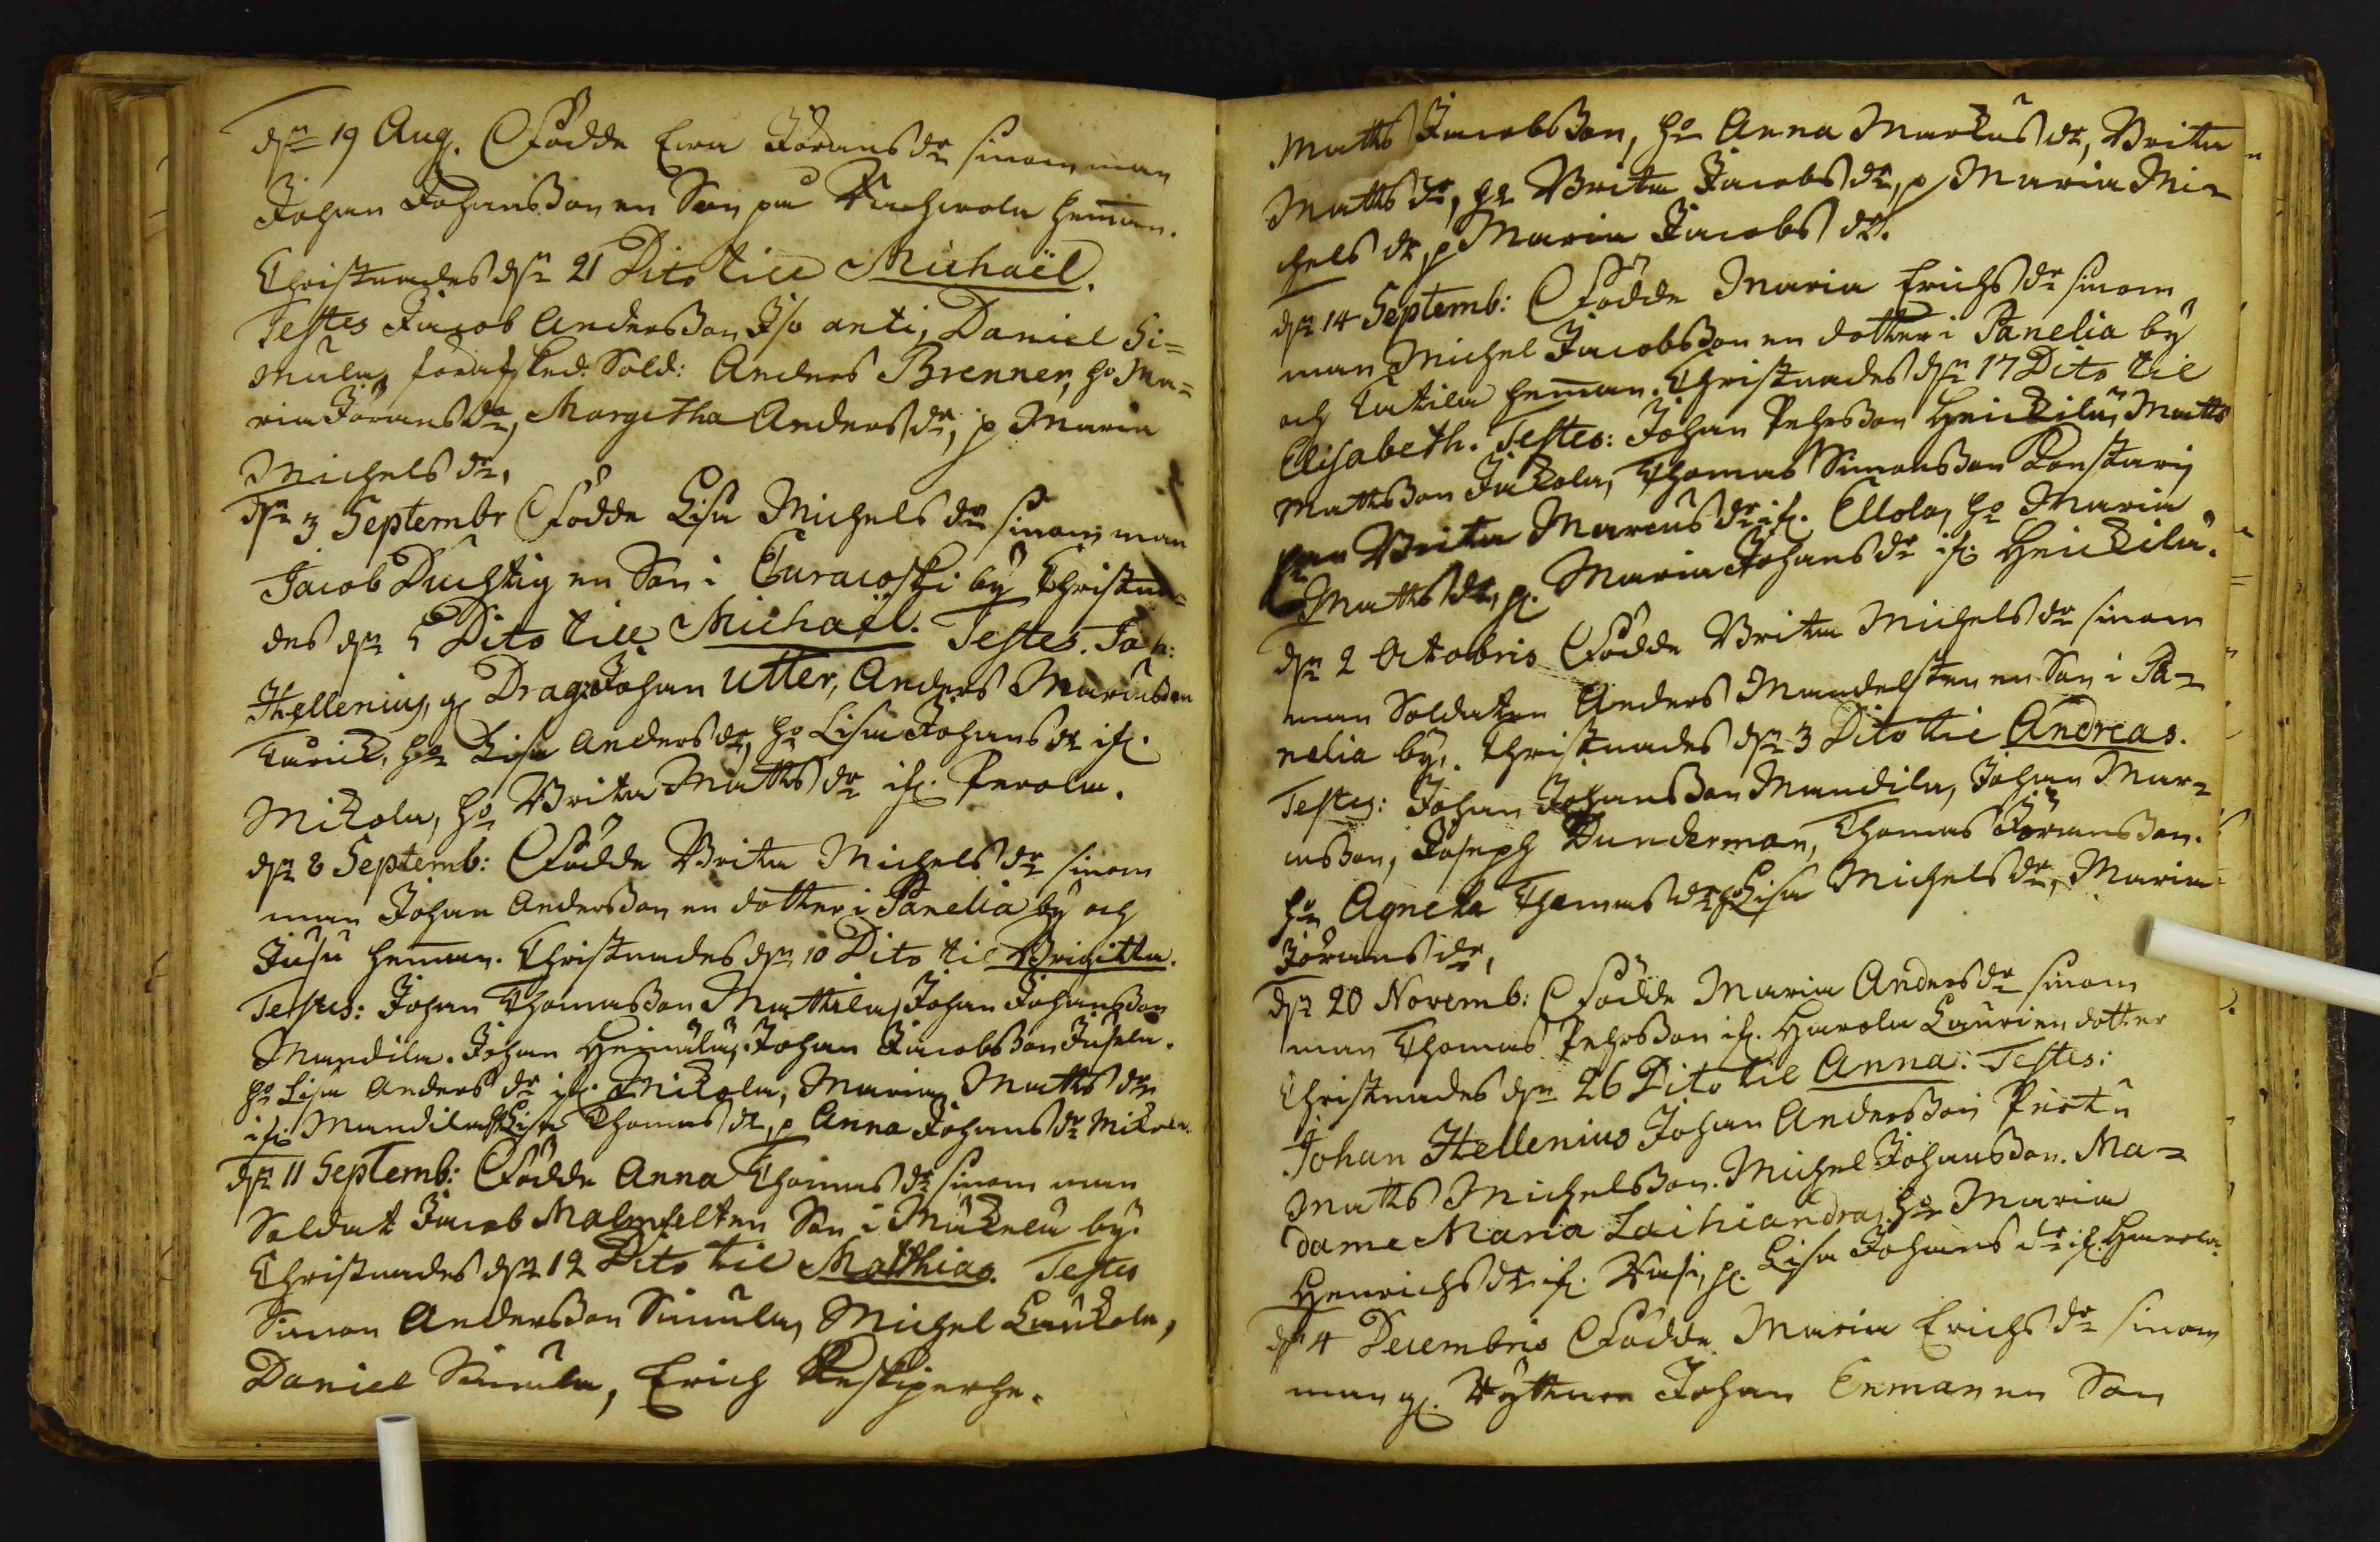 d: 19 Aug. Födde Ewa Jörans dr sinom man
Johan Johansson en Son på heman.
Christnades d: 21 Dito till Michaël.
Testes Jacob Andersson Iso anti, Daniel Si=
mula, förafsked. Sold: Anders Brenner, ho Ma=
ria Jörans dr, Margetha Anders dr, p Maria
Michels dr.
d: 3 Septembr Födde Lisa Michels dr sinom man
Jacob Duchtig en Son i Curacoski bÿ Christna=
des d: 5 Dito till Michaël. Testes. Joh:
Hellenius, g Drag: Johan Utter, Anders Marcusson
ho Lisa Anders dr, ho Lisa Johans dr if.
Mikola, ho Brita Matts dr if. Perola.
d: 8 Septemb: Födde Brita Michels dr sinom
man Johan Andersson en dotter i Panelia bÿ och
Jusu heman. Christnades d: 10 Dito til Brigitta.
Testes: Johan Thomasson Mattila, Johan Johansson
Mandila. Johan Heimala, Johan Jacobsson Jusela.
ho Lisa Anders dr if. Mikola, Maria Matts dr
if. Mandila, Lisa Thomas dr, p Anna Johans dr Mikola.
d: 11 Septemb: Födde Anna Thomas dr sinom man
Soldat Jacob Malmfelt en Son i Mukela bÿ.
Christnades d: 12 Dito til Matthias. Testes
Simon Andersson Simula, Michel Laukola,
Daniel Simula, Erich
Matts Jacobsson, ho Anna Markus dr, Brita
Matts dr, p Brita Jacobs dr, p Maria Mi=
chels dr, p Maria Jacobs dr.
d: 14 Septemb: Födde Maria Erichs dr sinom
man Michel Jacobsson en dotter i Panelia bÿ
och Catila heman. Christnades d: 17 Dito til
Elisabeth. Testes: Johan Pehrsson Heickilä, Matts
Mattsson Jakola, Thomas Simonsson Konstari
Brita Marcus dr if. Ellola, ho Maria
Matts dr, p. Maria Johans dr if. Heickilä.
d: 2 Octobris Födde Brita Michels dr sinom
man Soldaten Anders Mandelsten en Son i Pa=
nelia bÿ. Christnades d: 3 Dito til Andreas.
Testes: Johan Johansson Mandila, Johan Mar=
cusson, Joseph Dunderman, Thomas Göransson.
ho Agneta Thomas dr, Lisa Michels dr, Maria
Görans dr.
d: 20 Novemb: Födde Maria Anders dr sinom
man Thomas Pehrsson if. Harola Lauri en dotter
Christnades d: 26 Dito til Anna. Testes:
Johan Hellenius Johan Andersson Perttu
Matts Michelsson. Michel Johansson. Ma=
dame Maria Laihiandra, ho Maria
Henrichs dr if. Vasi, p. Lisa Johans dr if. Harola.
d: 4 Decembris Födde Maria Erichs dr sinom
man g. Rÿttare Johan Enman en Son